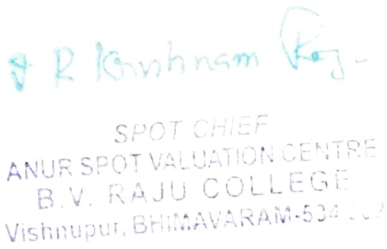 R Krishnam Raj
SPOT CHIEF
ANUR SPOT VALUATION CENTRE
B.V. RAJU COLLEGE
Vishnupur, BHIMAVARAM-534 202